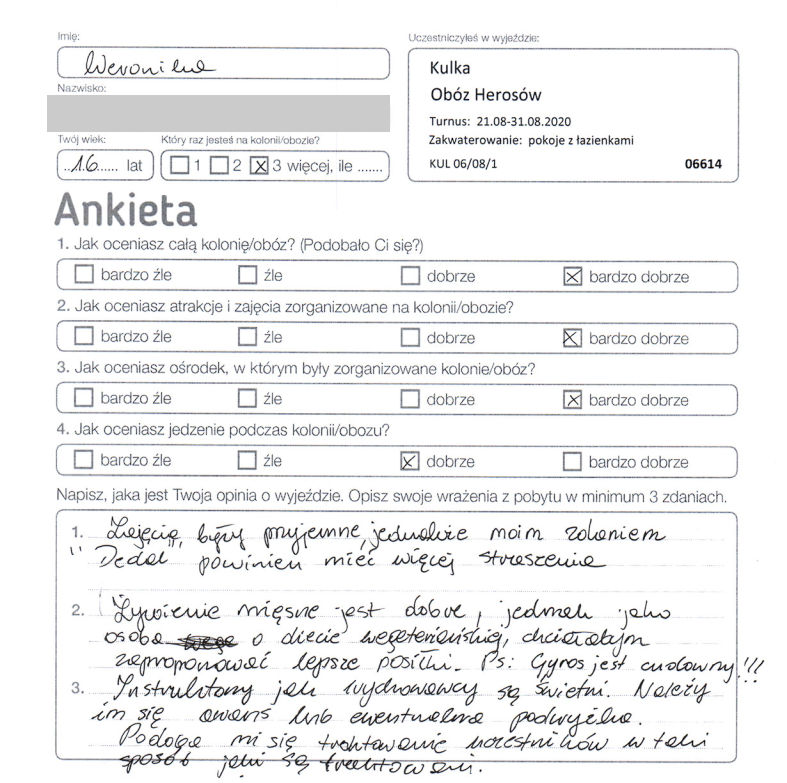 Imię:
Weronika
Nazwisko:
Twój wiek:
Który raz jesteś na kolonii/obozie?
..16..... lat
1 2 3 więcej, ile .......
Uczestniczyłeś w wyjeździe:
Kulka
Obóz Herosów
Turnus: 21.08-31.08.2020
Zakwaterowanie: pokoje z łazienkami
KUL 06/08/1 06614
Ankieta
1. Jak oceniasz całą kolonię/obóz? (Podobało Ci się?)
bardzo źle źle dobrze bardzo dobrze
2. Jak oceniasz atrakcje i zajęcia zorganizowane na kolonii/obozie?
bardzo źle źle dobrze bardzo dobrze
3. Jak oceniasz ośrodek, w którym były zorganizowane kolonie/obóz?
bardzo źle źle dobrze bardzo dobrze
4. Jak oceniasz jedzenie podczas kolonii/obozu?
bardzo źle źle dobrze bardzo dobrze
Napisz, jaka jest Twoja opinia o wyjeździe. Opisz swoje wrażenia z pobytu w minimum 3 zdaniach.
1. Zajęcia były przyjemne, jednakże moim zdaniem
"Dedal" powinien mieć więcej straszenia
2. Żywienie mięsne jest dobre, jednak jako
osoba o diecie wegetariańskiej, chciałabym
zaproponować lepsze posiłki. Ps: Gyros jest cudowny!!!
3. Instruktorzy jak wychowawcy są świetni. Należy
im się awans lub ewentualna podwyżka.
Podoga mi się traktowanie uczestników w taki
sposób jaki są traktowani.